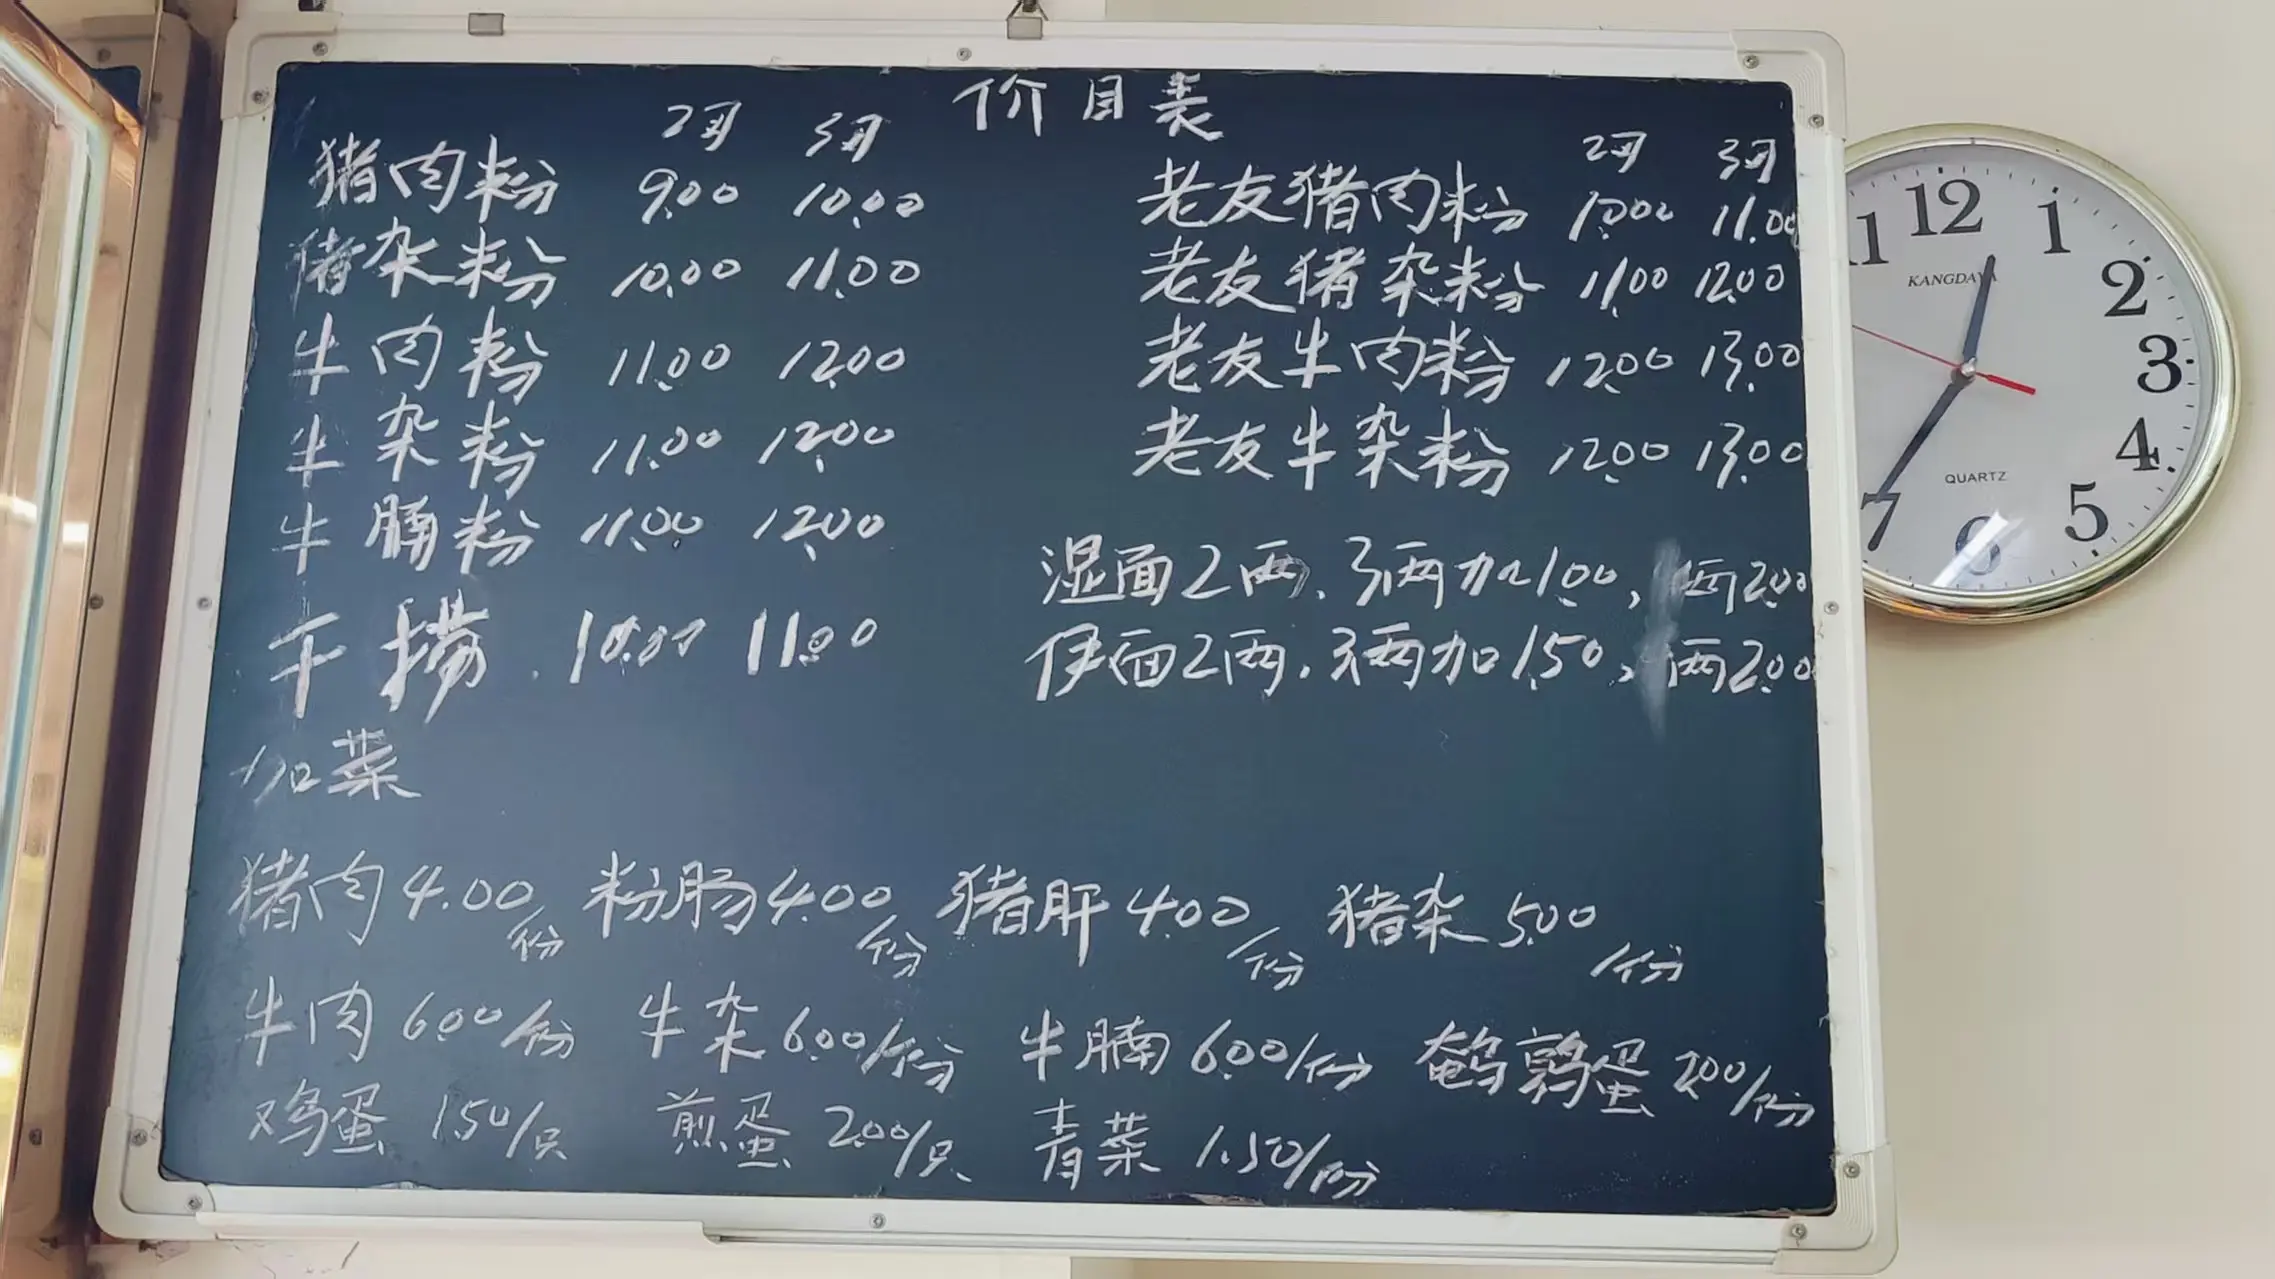 价目表
2两 3两
猪肉粉 9.00 10.00
猪杂粉 10.00 11.00
牛肉粉 11.00 12.00
牛杂粉 11.00 12.00
牛腩粉 11.00 12.00
干捞. 10.00 11.00
2两 3两
老友猪肉粉 10.00 11.00
老友猪杂粉 11.00 12.00
老友牛肉粉 12.00 13.00
老友牛杂粉 12.00 13.00
湿面2两、3两加1.00, 两2.00
伊面2两、3两加1.50, 两2.00
加菜
猪肉4.00/份 粉肠4.00/份 猪肝4.00/份 猪杂5.00/份
牛肉6.00/份 牛杂6.00/份 牛腩6.00/份 鹌鹑蛋2.00/份
鸡蛋 1.50/只 煎蛋 2.00/只 青菜 1.50/份
11 12 1 2 3 4 5 6 7
KANGDA
QUARTZ